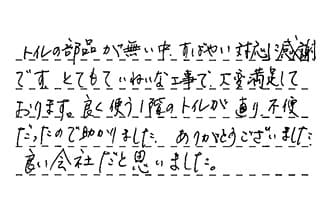 トイレの部品が無い中、すばやい対応に感謝
です。とてもていねいな工事で、大変満足して
おります。良く使う1階のトイレが直り、不便
だったので助かりました。ありがとうございました。
良い会社だと思いました。